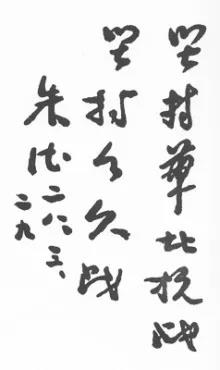 坚持华北抗战
坚持久战
朱德 二八、三、
二九